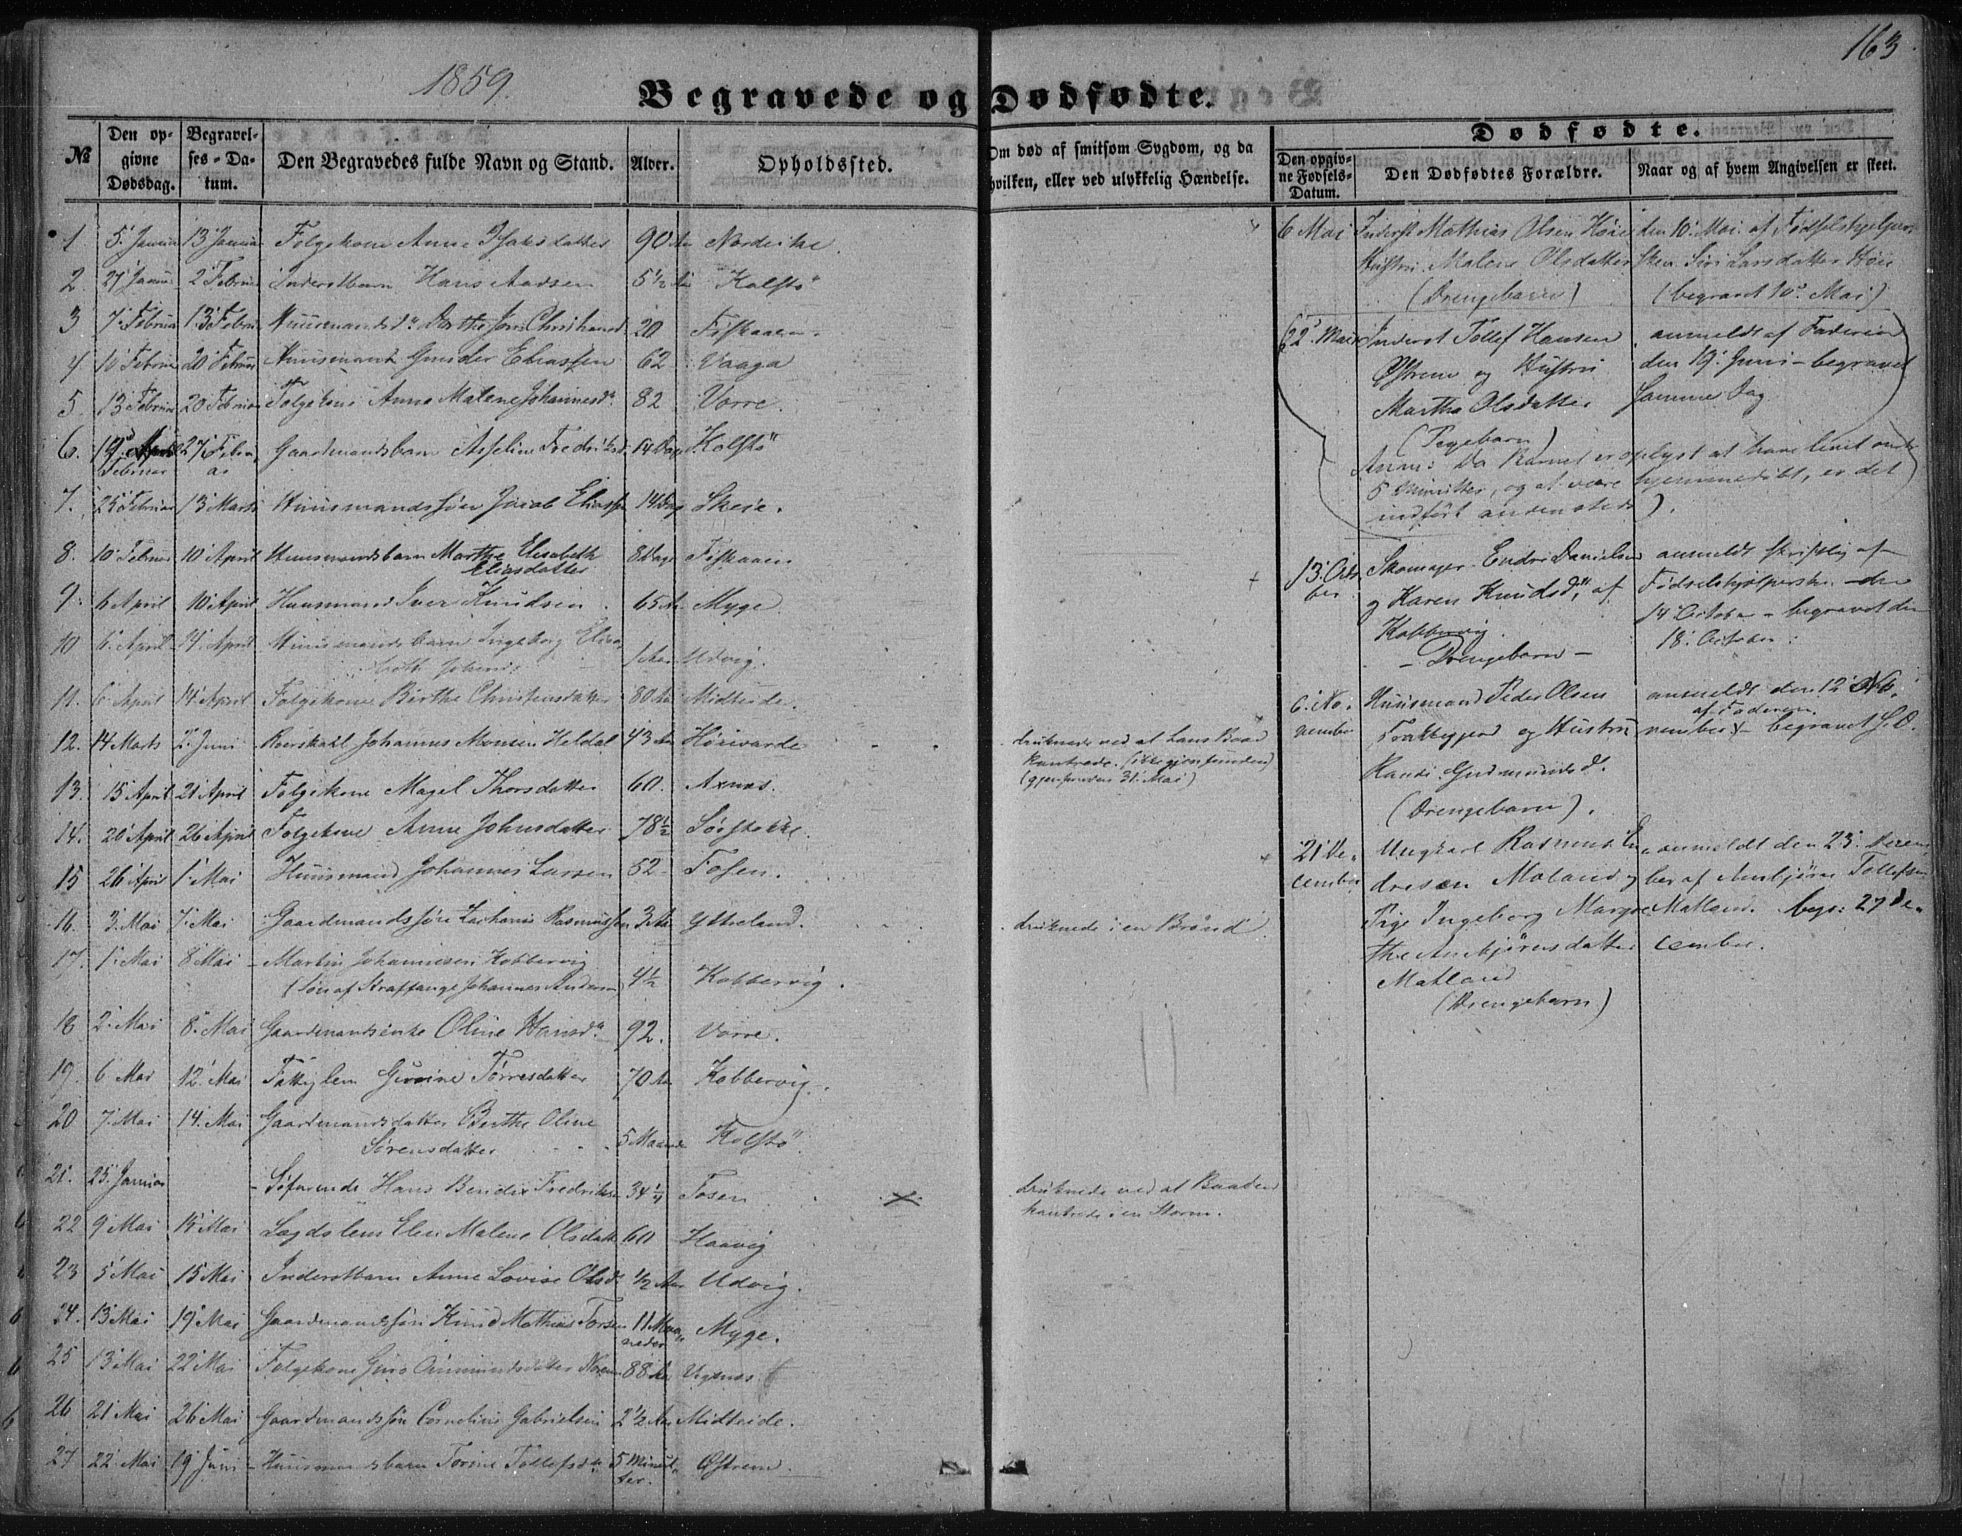 163
1859.
Begravede og Dødfødte.
№
Den opgivne Dødsdag.
Begravelses-Datum.
Den Begravedes fulde Navn og Stand.
Alder.
Opholdssted.
Om død af smitsom Sygdom, og da hvilken, eller ved ulykkelig Hændelse.
Dødfødte.
Den opgivne Fødsels-Datum.
Den Dødfødtes Forældre.
Naar og af hvem Angivelsen er skeet.
1 5. Januar 13 Januar Følgekone Anne Isaksdatter 90 Aar Nordeike
2 27 Januar 2 Februar Inderstbarn Hans Aadsen 5 ½ Aar Kolstø
3 7 Februar 13 Februar Huusmandsd. Dorthe Christiansd 20 Fiskaaen
4 10 Februar 20 Februar Huusmand Gunder Eliassen 62 Vaaga
5. 13 Februar 20 Februar Følgekone Anna Malene Johannesd. 82 Vorre.
6. 19 Februar 27 Februar Gaardmandsbarn Asseline Fredriksd. 14 Dage Kolstø
7. 25 Februar 13 Marts Huusmandssøn Jacob Eliassen 14 Dage Skeie.
8. 10 Februar 10 April Huusmandsbarn Marthe Elisabeth
Eliasdatter 8 Dage Fiskaaen
9. 6 April 10 April Huusmand Iver Knudsen 65 Aar Myge.
10 6. April 14. April Huusmandsbarn Ingeborg Elisa-
1 Aar Udvig.
11. 6 April 14 April Følgekone Birthe Christensdatter 80 Aar Midteide.
12. 14 Marts 2. Juni Johannes Monsen Heldal 43 Aar Høievarde druknede ved at Baad
kantrede. (ikke gjenfunden)
(gjenfunden 31. Mai)
13. 15 April 21 April Følgekone Magel Thorsdatter 60. Axnæs.
14. 20 April 26 April Følgekone Anne Johnsdatter 78 ½ Sørstokke.
15 26 April 1. Mai Huusmand Johannes Larsen 52. Fosen.
16. 3. Mai 7. Mai Gaardmandssøn Zacharias Rasmussen 3 Aar Ytreland. druknede i en Brønd
17. 1. Mai 8 Mai Martin Johannesen Kobbervig
(Søn af Straffange Johannes Andersen) 4 ½ Kobbervig.
18 2. Mai 8. Mai Gaardmandsenke Oline Hansd. 92. Vorre.
19. 6 Mai 12. Mai Fattiglem Gurine Tørresdatter 70 Aar Kobbervig.
20 7. Mai 14. Mai Gaardmandsdatter Birthe Oline
Sørensdatter 5 Maaned Kolstø
21. 25. Januar Søfarende Hans Bendix Fredriksen 34 ¼ Fosen × druknede ved at Baaden
kantrede i en Storm.
22 9 Mai 15 Mai Lægdslem Elen Malene Olsdatt 60 Haavig
23 5 Mai 15 Mai Inderstbarn Anne Lovise Olsd. ½ Aar Udvig.
24. 13 Mai 19 Mai Gaardmandssøn Knud Mathias Torsen 11 Maaneder Myge.
25 13 Mai 22 Mai Følgekone Guro Amundsdatter 88 Aar Vignæs
26 21 Mai 26 Mai Gaardmandssøn Cornelius Gabrielsen 2 ½ Aar Midteide.
27 22 Mai 19 Juni Huusmandsbarn Torine Tollefsd. 5 Minutter. Østrem.
6 Mai Inderst Mathias Olsen Høie den 10. Mai af Fødselshjelper-
Hustru Malene Olsdatter sken Siri Larsdatter Høie
(Drengebarn) (begravet 10. Mai)
(22. Mai Inderst Tollef Hansen anmeldt af Faderen
Østrem og Hustru den 19. Juni – begravet
Martha Olsdatter samme Dag
(Pigebarn)
Anm: Da Barnet er oplyst at have levet
5 Minutter, og at være hjemmedøbt, er det
indført andensteds).
13. October Skomager Endre Danielsen anmeldt skriftlig af
og Karen Knudsd. af Fødselshjelpersken den
Kobbervig. 14 October – begravet den
– Drengebarn – 18. October.
6. November Huusmand Peder Olsen anmeldt den 12 No-
af Faderen
og Hustru vember – begravet S. D.
Randi Gudmundsd.
(Drengebarn).
21 December Ungkarl Rasmus En- anmeldt den 23. Decem-
dresen Matland og ber af Anbjørn Tollefsen
Pige Ingeborg Margre- Matland. begr: 27 De-
the Anbjørnsdatter cember.
Matland
(Drengebarn)